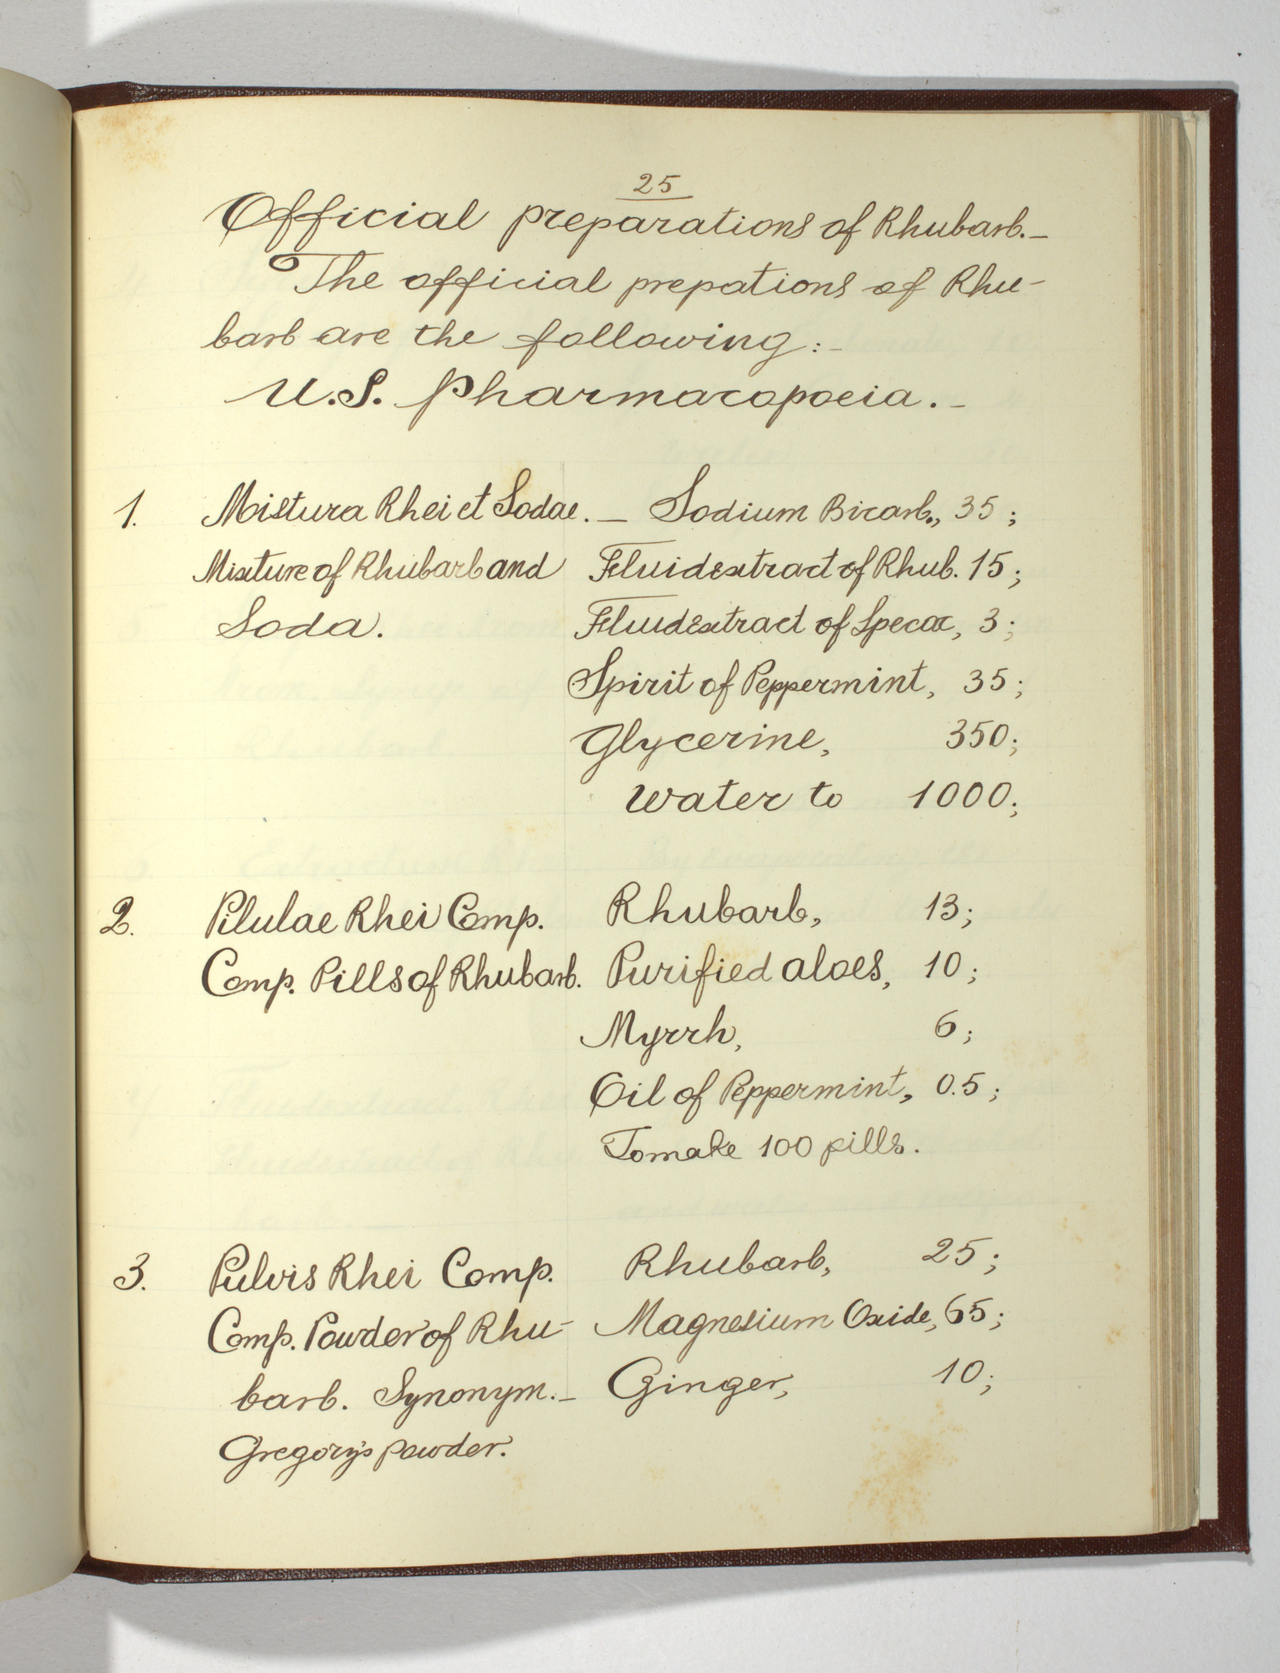 25
Official preparations of Rhubarb.—
The official prepations of Rhu-
barb are the following:-
U.S. Pharmacopoeia.-
1. Mistura Rhei et Sodae. — Sodium Bicarb., 35;
Mixture of Rhubarb and Fluidextract of Rhub. 15;
Soda. Fluidextract of Ipecac, 3;
Spirit of Peppermint, 35;
Glycerine, 350;
Water to 1000;
2. Pilulae Rhei Comp. Rhubarb, 13;
Comp. Pills of Rhubarb. Purified aloes, 10;
Myrrh, 6;
Oil of Peppermint, 0.5;
To make 100 pills.
3. Pulvis Rhei Comp. Rhubarb, 25;
Comp. Powder of Rhu- Magnesium Oxide, 65;
barb. Synonym.— Ginger, 10;
Gregory's powder.